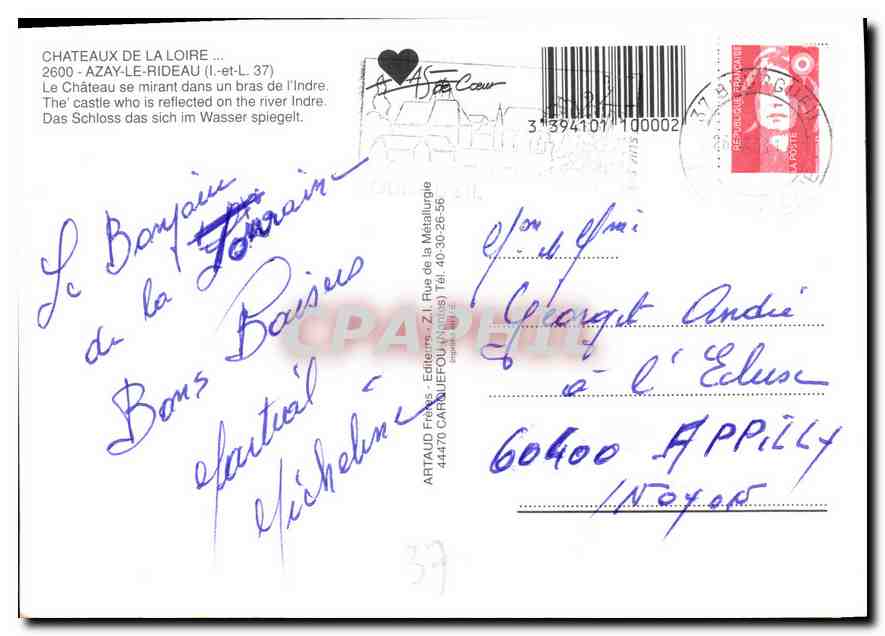 CHATEAUX DE LA LOIRE ...
2600 - AZAY-LE-RIDEAU (I.-et-L. 37)
Le Château se mirant dans un bras de l'Indre.
The' castle who is reflected on the river Indre.
Das Schloss das sich im Wasser spiegelt.
AS de Cœur
3 394101 100002
RÉPUBLIQUE FRANÇAISE
LA POSTE
Le Bonjour
de la Touraine
Bons Baisers
Martial
Micheline
ARTAUD Frères - Editeurs - Z.I. Rue de la Métallurgie
44470 CARQUEFOU (Nantes) Tél. 40-30-26-56
CPAPHIL
Mon et Mme
Georget André
à l'Ecluse
60400 APPILLY
/Noyon
37